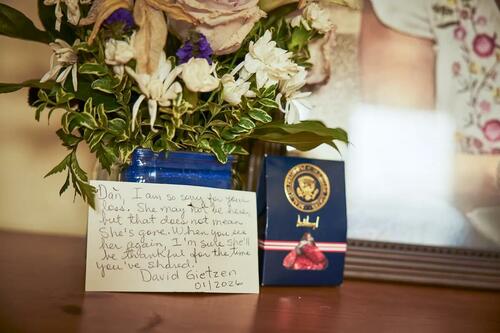 Dan, I am so sorry for your
loss. She may not be here,
but that does not mean
she's gone. When you see
her again, I'm sure she'll
be thankful for the time
you've shared!
David Gietzen
01/2026